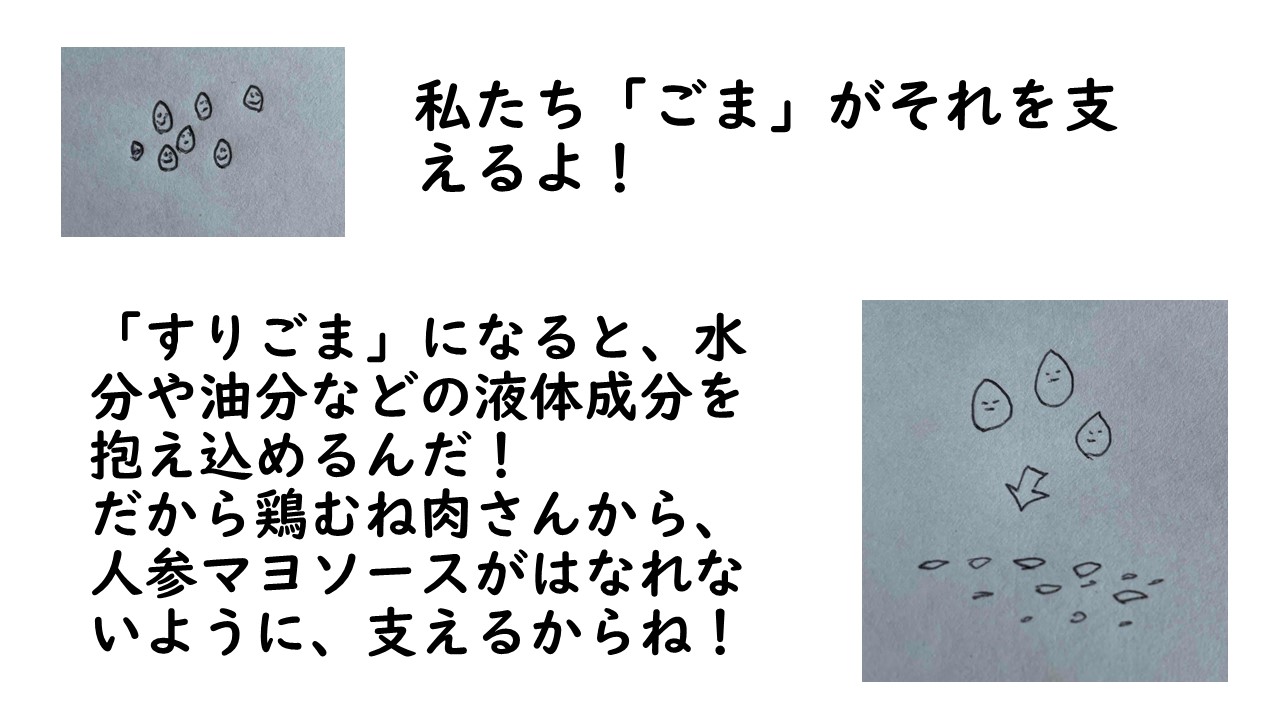 私たち「ごま」がそれを支
えるよ！
「すりごま」になると、水
分や油分などの液体成分を
抱え込めるんだ！
だから鶏むね肉さんから、
人参マヨソースがはなれな
いように、支えるからね！